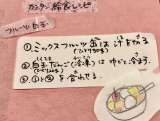 カンタン 給食レシピ
フルーツ白玉
①ミックスフルーツ缶は汁をきる
②白玉だんご(冷凍)は ゆでて冷ます。
③①と②を合わせる。